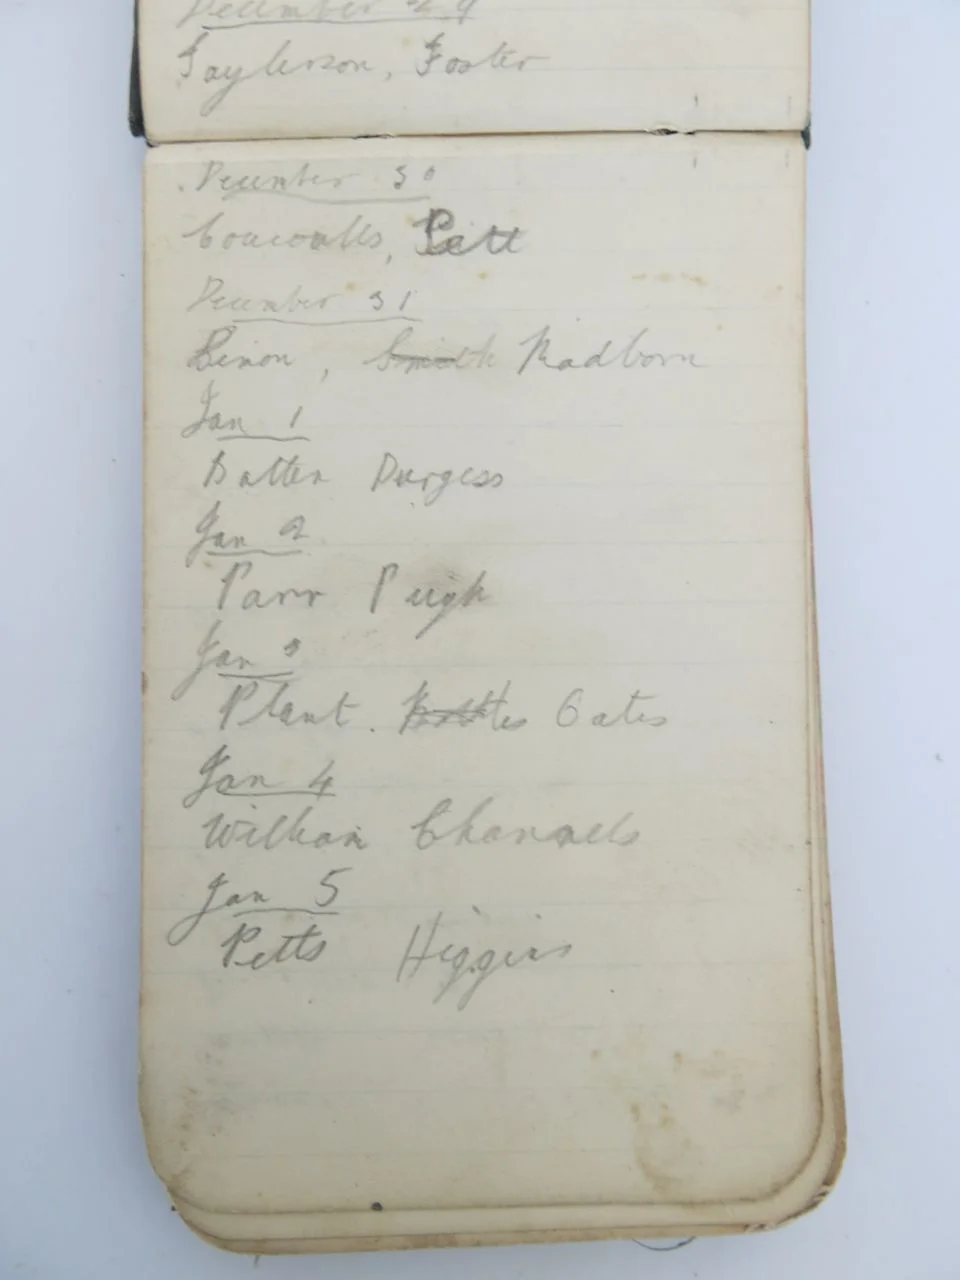 December 29
Taylerson, Foster
December 30
Pett
December 31
Smith Radborn
Jan 1
Batten Durgess
Jan 2
Parr Pugh
Jan 3
Plant. Oates
Jan 4
Channels
Jan 5
Petts Higgins